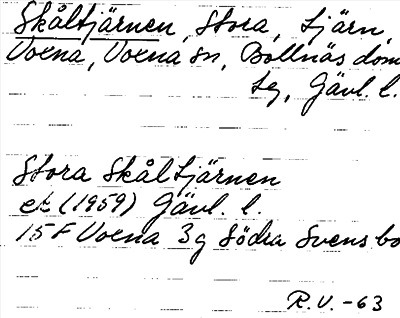 Skåltjärnen, Stora, tjärn,
Voxna, Voxna sn, Bollnäs dom
sg, Gävl. l.
Stora Skåltjärnen
ek (1959) Gävl. l.
15F Voxna 3g Södra Svensbo
R.V. -63